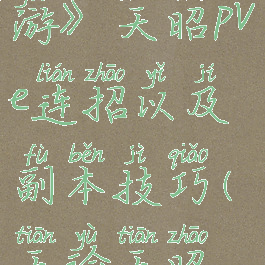 游》 天昭pv
lián zhāo yǐ jí
e连招以及
fù běn jì qiǎo
副本技巧(
tiān yù tiān zhāo
天谕天昭